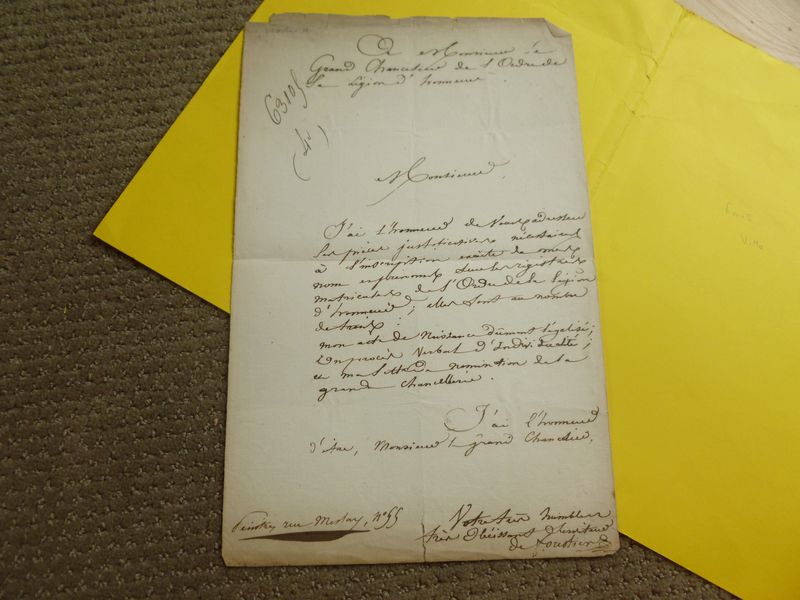 A Monsieur le
Grand Chancelier de l'Ordre de
la Légion d'honneur
63105
Monsieur,
J'ai l'honneur de vous adresser
les pièces justificatives nécessaires
à l'inscription exacte de mes
nom et prénoms sur les registres
matricules de l'Ordre de la Légion
d'honneur; elles sont au nombre
de trois:
mon acte de Naissance dûment légalisé;
un procès Verbal d'Individualité;
et ma lettre de nomination de la
grande Chancellerie.
J'ai l'honneur
d'être, Monsieur le Grand Chancelier,
Votre très humble
très obéissant Serviteur
rue Meslay, N° 55